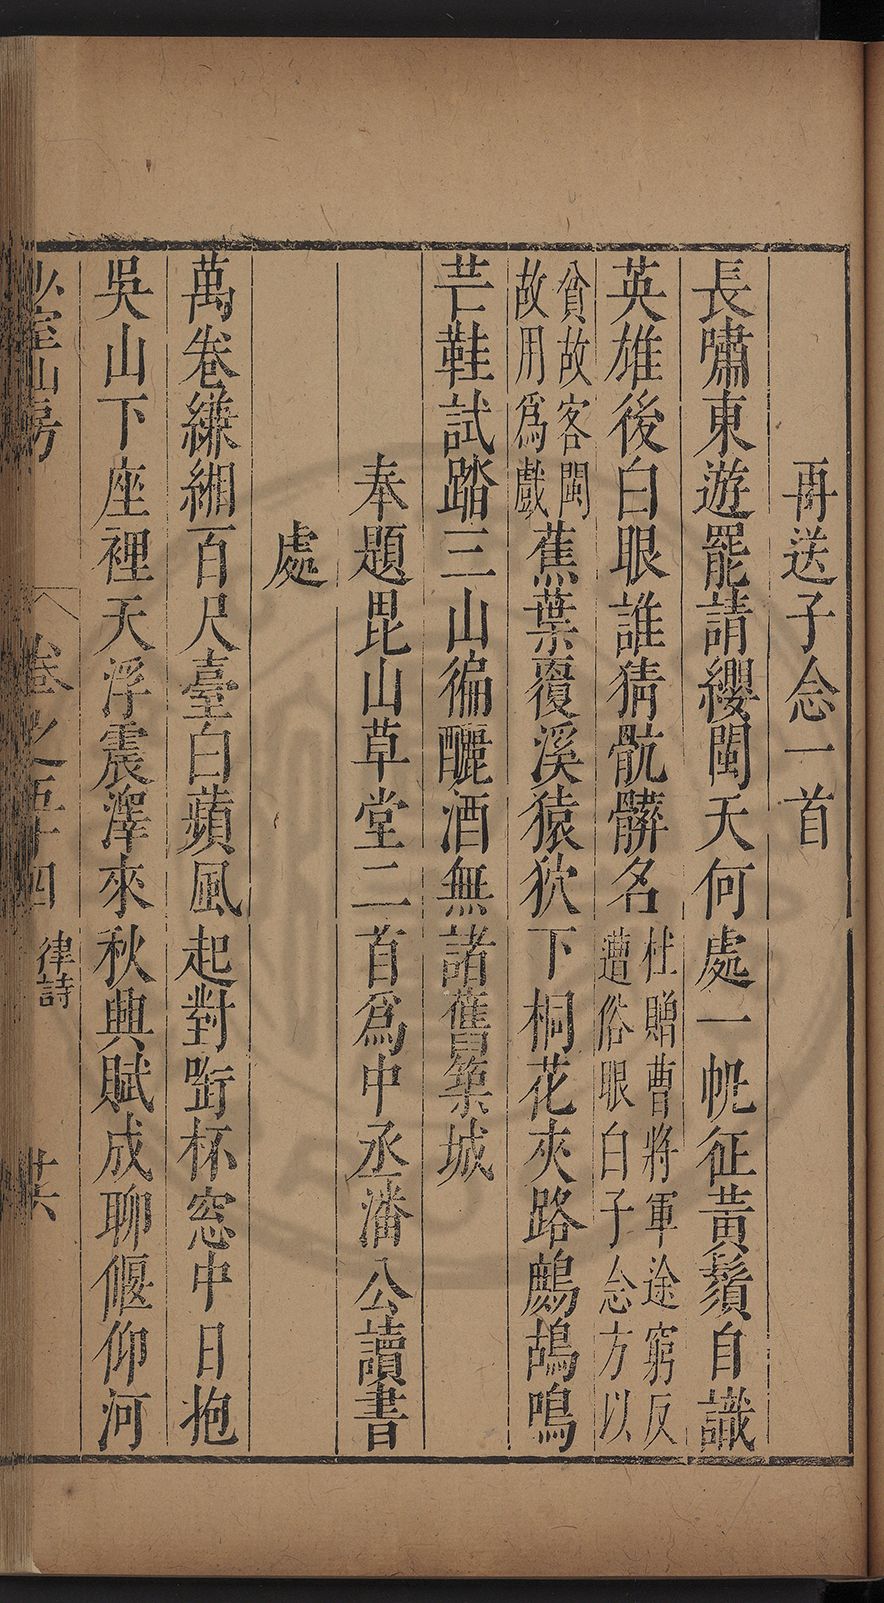 再送子念一首
長嘯東遊罷請纓閩天何處一帆征黃鬚自識
英雄後白眼誰猜骯髒名杜贈曹將軍途窮反遭俗眼白子念方以
貧故客閩故用爲戲蕉葉覆溪猿狖下桐花夾路鷓鴣鳴
芒鞋試踏三山徧釃酒無諸舊築城
奉題毘山草堂二首爲中丞潘公讀書
處
萬卷縑緗百尺臺白蘋風起對銜杯窓中日抱
吳山下座裡天浮震澤來秋興賦成聊偃仰河
少室山房
卷之五十四
律詩
廿六